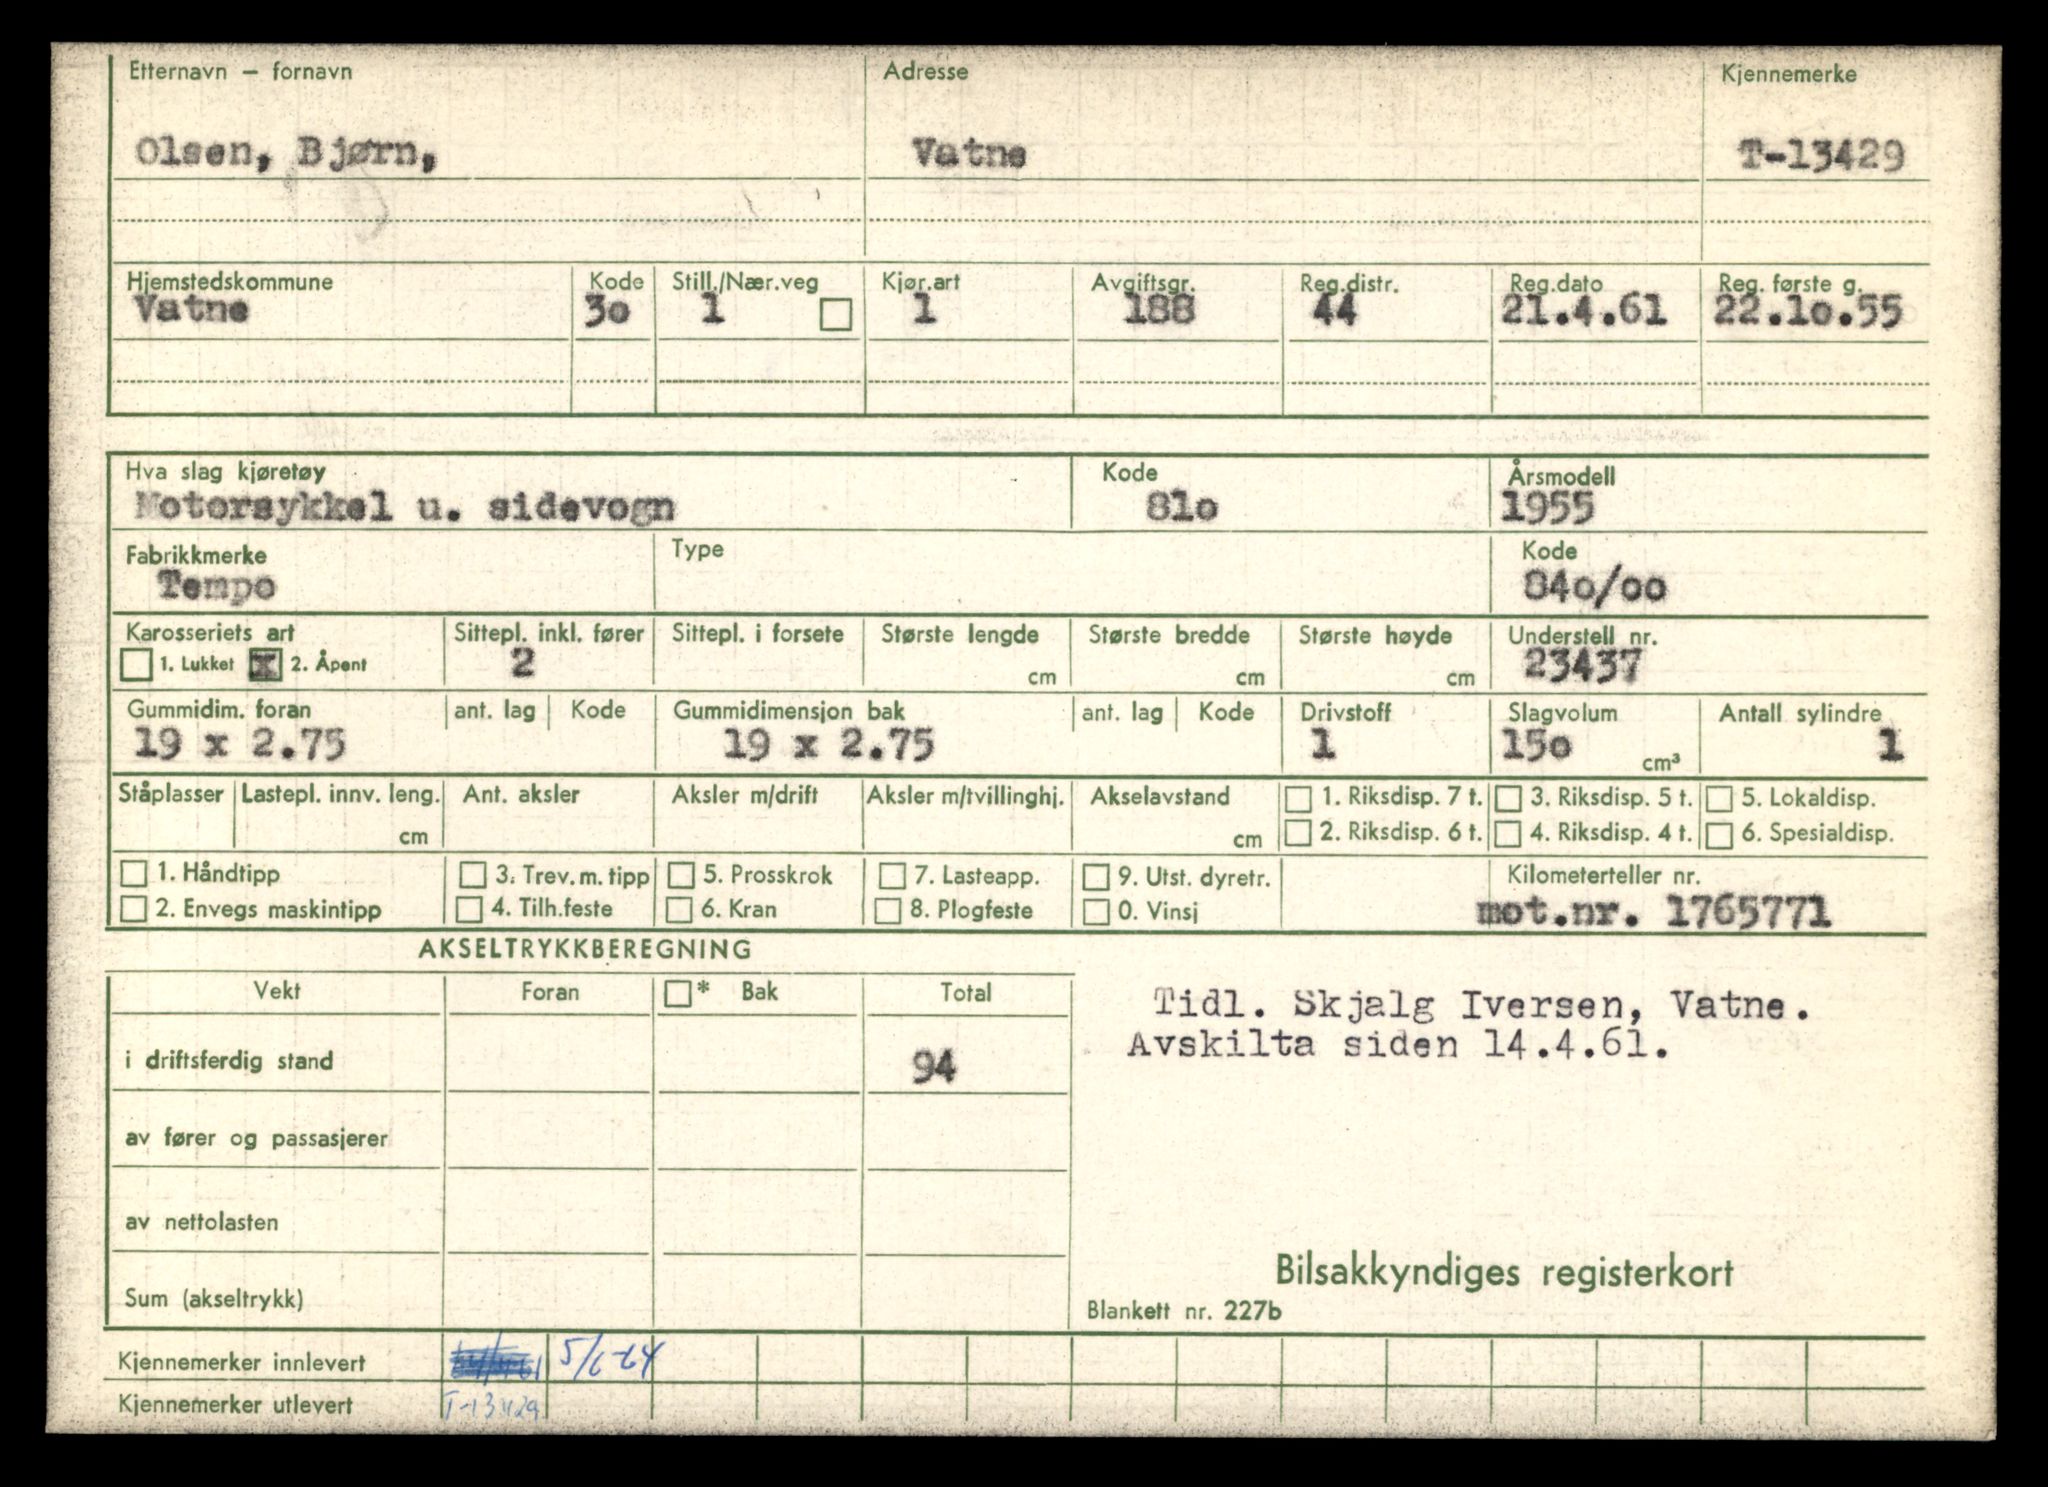 Etternavn – fornavn Adresse Kjennemerke
Olsen, Bjørn, Vatne T-13429
Hjemstedskommune Kode Still./Nær.veg Kjør.art Avgiftsgr. Reg.distr. Reg.dato Reg. første g.
Vatne 3o 1 1 188 44 21.4.61 22.1o.55
Hva slag kjøretøy Kode Årsmodell
Motorsykkel u. sidevogn 81o 1955
Fabrikkmerke Type Kode
Tempo 84o/oo
Karosseriets art Sittepl. inkl. fører Sittepl. i forsete Største lengde Største bredde Største høyde Understell nr.
1. Lukket x 2. Åpent 2 cm cm cm 23437
Gummidim. foran ant. lag Kode Gummidimensjon bak ant. lag Kode Drivstoff Slagvolum Antall sylindre
19 x 2.75 19 x 2.75 1 15o cm³ 1
Ståplasser Lastepl. innv. leng. Ant. aksler Aksler m/drift Aksler m/tvillinghj. Akselavstand 1. Riksdisp. 7 t. 3. Riksdisp. 5 t. 5. Lokaldisp.
cm cm 2. Riksdisp. 6 t. 4. Riksdisp. 4 t. 6. Spesialdisp.
1. Håndtipp 3. Trev. m. tipp 5. Prosskrok 7. Lasteapp. 9. Utst. dyretr. Kilometerteller nr.
2. Envegs maskintipp 4. Tilh.feste 6. Kran 8. Plogfeste 0. Vinsj mot.nr. 1765771
AKSELTRYKKBEREGNING
Vekt Foran * Bak Total
Tidl. Skjalg Iversen, Vatne.
Avskilta siden 14.4.61.
i driftsferdig stand 94
av fører og passasjerer
av nettolasten
Bilsakkyndiges registerkort
Sum (akseltrykk)
Blankett nr. 227b
Kjennemerker innlevert 5/6-64
Kjennemerker utlevert T-13429